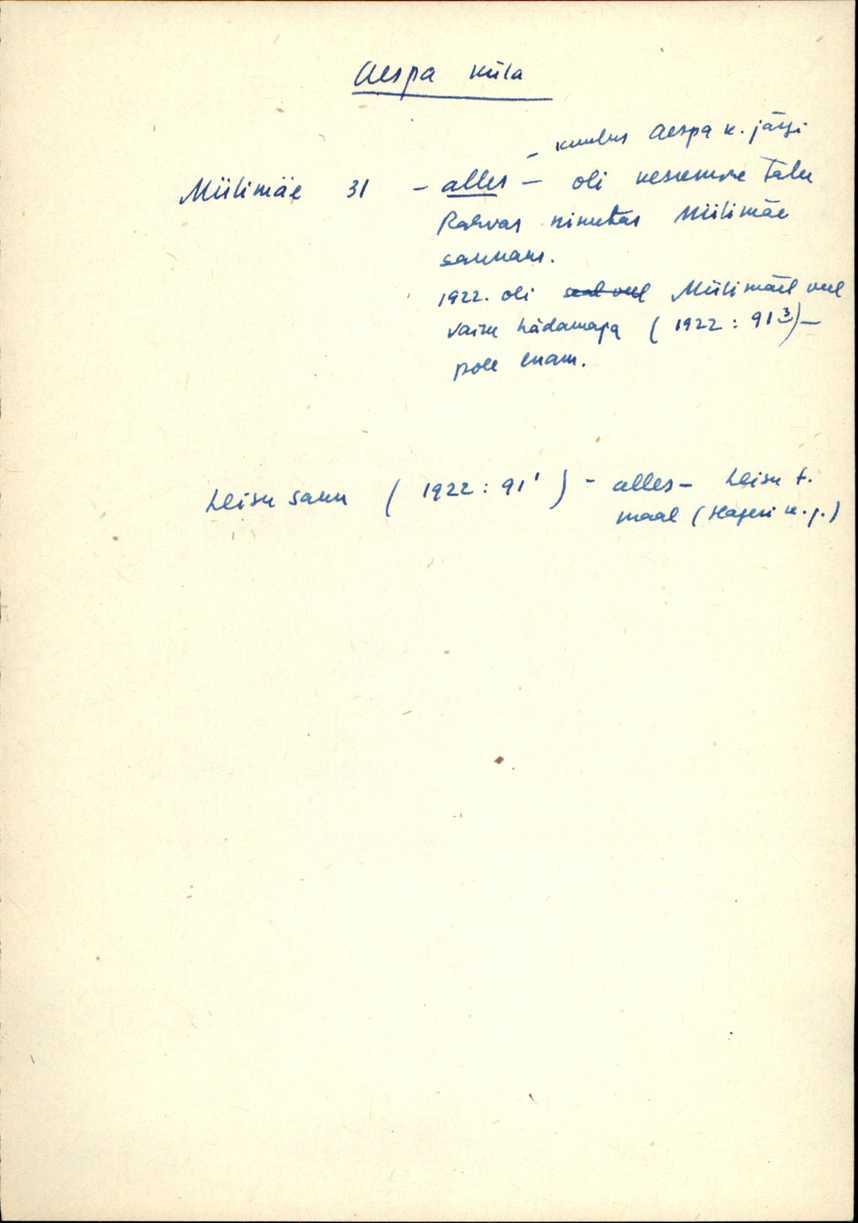 Aespa küla
- kuulus Aespa k. järgi
Miilimäe 31 - alles - oli keskmine talu
Rahvas nimetas Miilimäe
saunaks.
1922. oli seal veel Miilimäel veel
vaim hädamaja (1922: 91³) -
pole enam.
Leisu saun (1922: 91¹) - alles - Leisu t.
maal (Hageri k. j.)